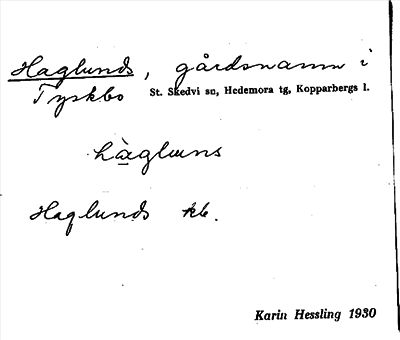 Haglunds, gårdsnamn i
Tyskbo St. Skedvi sn, Hedemora tg, Kopparbergs l.
hàglɯns
Haglunds kb.
Karin Hessling 1930